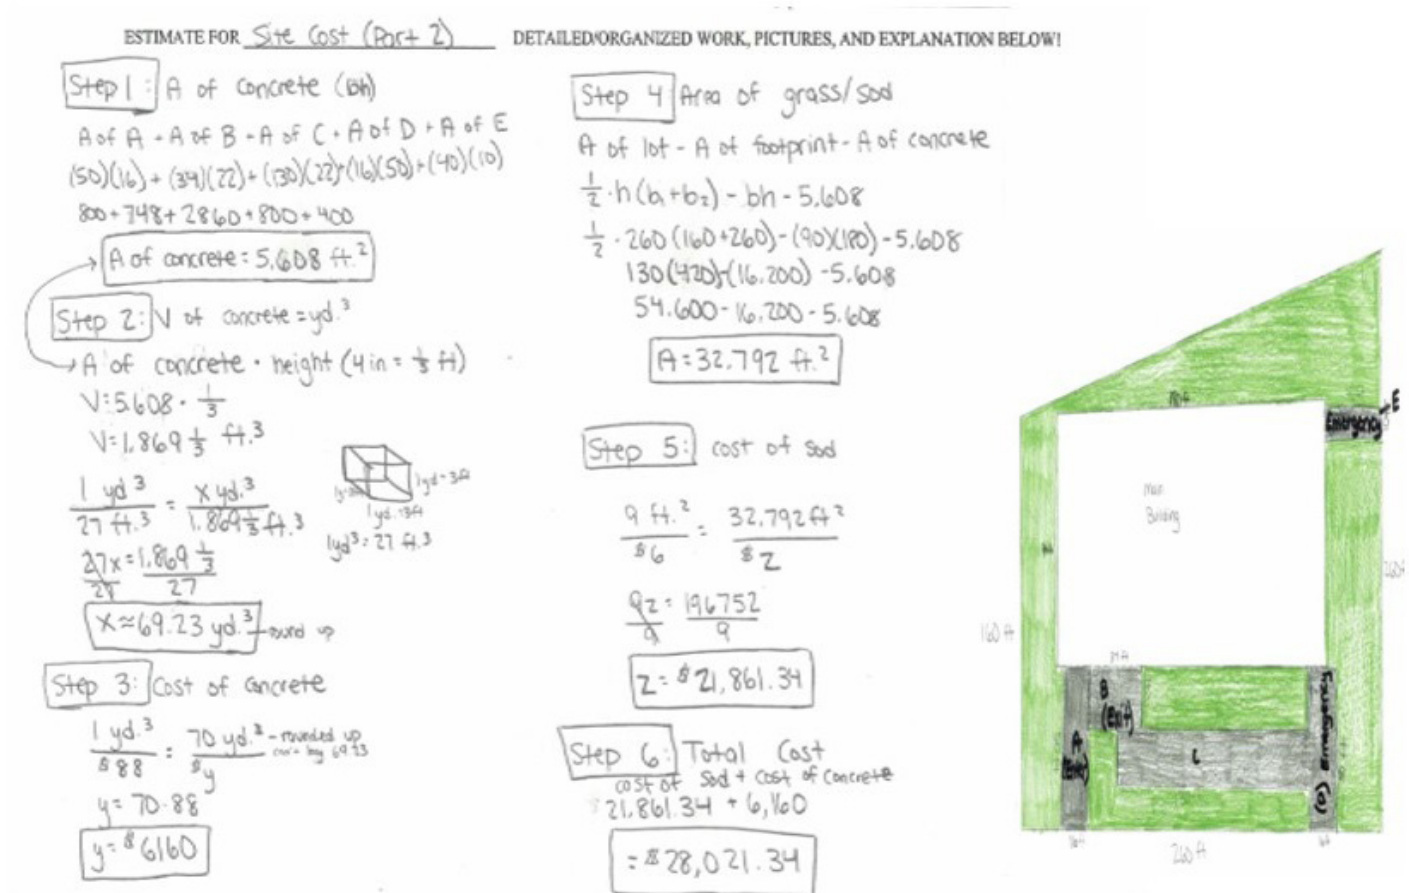 ESTIMATE FOR Site Cost (Part 2) DETAILED/ORGANIZED WORK, PICTURES, AND EXPLANATION BELOW!
Step 1: A of concrete (bh)
A of A + A of B + A of C + A of D + A of E
(50)(16) + (34)(22) + (130)(22) + (16)(50) + (40)(10)
800 + 748 + 2860 + 800 + 400
A of concrete = 5,608 ft.²
Step 2: V of concrete = yd.³
A of concrete · height (4 in = 1/3 ft)
V = 5,608 · 1/3
V = 1,869 1/3 ft.³
1 yd³ / 27 ft.³ = x yd.³ / 1,869 1/3 ft.³
1 yd = 3ft
1 yd = 3ft
1 yd³ = 27 ft.³
27x / 27 = 1,869 1/3 / 27
x ≈ 69.23 yd.³ round up
Step 3: Cost of concrete
1 yd.³ / $88 = 70 yd.³ / $y - rounded up
can't buy 69.23
y = 70·88
y = $6160
Step 4 Area of grass/sod
A of lot - A of footprint - A of concrete
1/2 · h(b₁+b₂) - bh - 5,608
1/2 · 260(160+260) - (90)(180) - 5,608
130(420) - (16,200) - 5,608
54,600 - 16,200 - 5,608
A = 32,792 ft.²
Step 5: cost of sod
9 ft.² / $6 = 32,792 ft² / $z
9z / 9 = 196752 / 9
z = $21,861.34
Step 6: Total Cost
cost of sod + cost of concrete
21,861.34 + 6,160
= $28,021.34
E
Emergency
Main
Building
260 ft
160 ft
B
(Exit)
A
C
(D) Emergency
260 ft